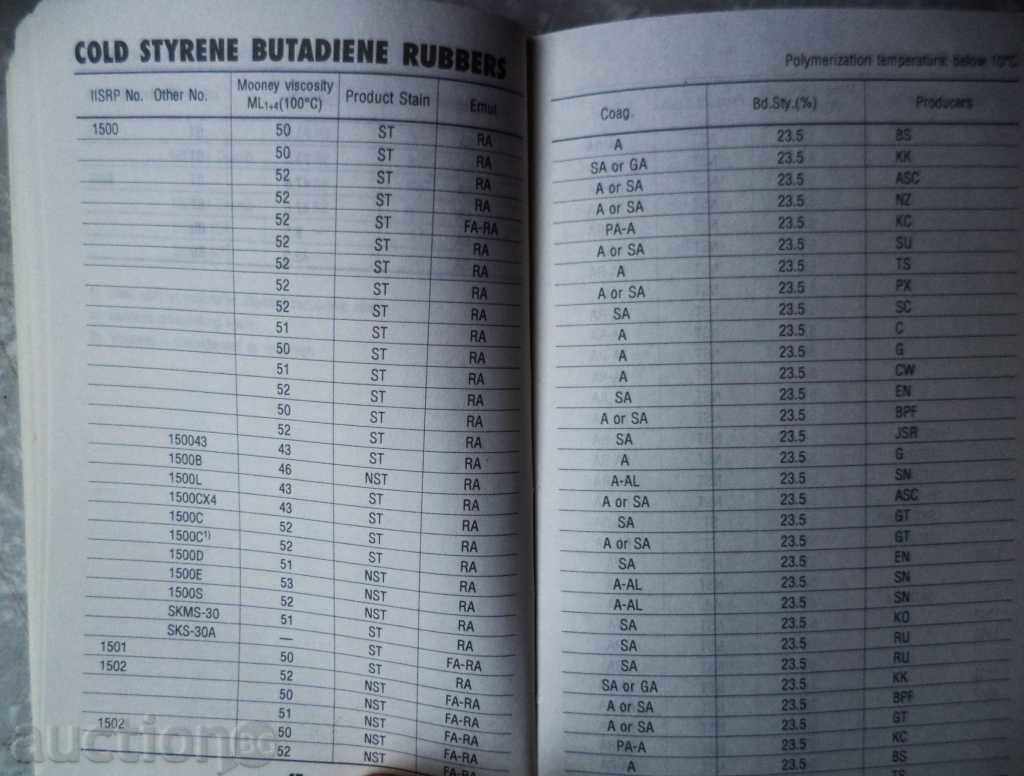 COLD STYRENE BUTADIENE RUBBERS
IISRP No. Other No. Mooney viscosity ML1+4(100°C) Product Stain Emul
1500 50 ST RA
50 ST RA
52 ST RA
52 ST RA
52 ST FA-RA
52 ST RA
52 ST RA
52 ST RA
52 ST RA
51 ST RA
50 ST RA
51 ST RA
52 ST RA
50 ST RA
52 ST RA
150043 43 ST RA
1500B 46 NST RA
1500L 43 ST RA
1500CX4 43 ST RA
1500C 52 ST RA
1500C1) 52 ST RA
1500D 51 NST RA
1500E 53 NST RA
1500S 52 NST RA
SKMS-30 51 ST RA
SKS-30A — ST FA-RA
1501 50 ST RA
1502 52 NST FA-RA
50 NST FA-RA
51 NST FA-RA
1502 50 NST FA-RA
52 NST FA-RA
Polymerization temperature: below 10°C
Coag. Bd.Sty.(%) Producers
A 23.5 BS
SA or GA 23.5 KK
A or SA 23.5 ASC
A or SA 23.5 NZ
PA-A 23.5 KC
A or SA 23.5 SU
A 23.5 TS
A or SA 23.5 PX
SA 23.5 SC
A 23.5 C
A 23.5 G
A 23.5 CW
SA 23.5 EN
A or SA 23.5 BPF
SA 23.5 JSR
A 23.5 G
A-AL 23.5 SN
A or SA 23.5 ASC
SA 23.5 GT
A or SA 23.5 GT
SA 23.5 EN
A-AL 23.5 SN
A-AL 23.5 SN
SA 23.5 KO
SA 23.5 RU
SA 23.5 RU
SA or GA 23.5 KK
A or SA 23.5 BPF
A or SA 23.5 GT
PA-A 23.5 KC
A 23.5 BS
TS
auctionBG